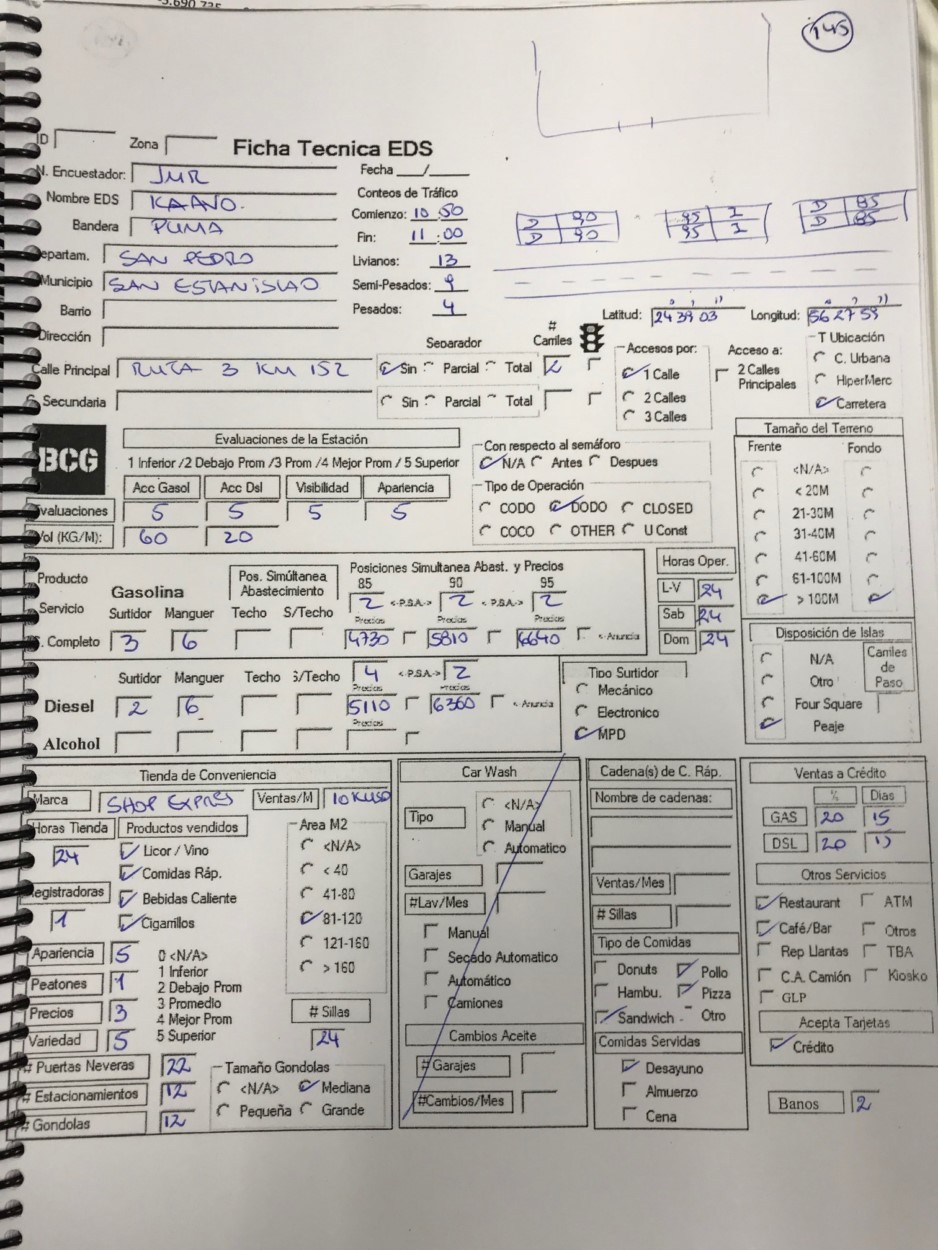 3.690.735
145
ID Zona
Ficha Tecnica EDS
N. Encuestador: JMR Fecha __/__
Nombre EDS KAAVO. Conteos de Tráfico
Bandera PUMA Comienzo: 10:50
Fin: 11:00
Departam. SAN PEDRO Livianos: 13
Municipio SAN ESTANISLAO Semi-Pesados: 9
Barrio Pesados: 4
D 90
D 90
95 I
95 I
D 85
D 85
Latitud: 24 39 03 Longitud: 56 27 59
Dirección
Separador # Carriles
Calle Principal RUTA 3 KM 152 Sin Parcial Total 2
C. Secundaria Sin Parcial Total
Accesos por:
1 Calle
2 Calles
3 Calles
Acceso a:
2 Calles Principales
T Ubicación
C. Urbana
HiperMerc
Carretera
BCG
Evaluaciones de la Estación
1 Inferior /2 Debajo Prom /3 Prom /4 Mejor Prom / 5 Superior
Acc Gasol Acc Dsl Visibilidad Apariencia
Evaluaciones 5 5 5 5
Vol (KG/M): 60 20
Con respecto al semáforo
N/A Antes Despues
Tipo de Operación
CODO DODO CLOSED
COCO OTHER U Const
Tamaño del Terreno
Frente Fondo
<N/A>
< 20M
21-30M
31-40M
41-60M
61-100M
> 100M
Producto
Servicio
Gasolina
Pos. Simúltanea Abastecimiento
Posiciones Simultanea Abast. y Precios
85 90 95
2 <-P.S.A-> 2 <-P.S.A-> 2
Surtidor Manguer Techo S/Techo Precios Precios Precios
S. Completo 3 6 4730 5810 6640 <- Anuncia
Horas Oper.
L-V 24
Sab 24
Dom 24
Surtidor Manguer Techo S/Techo 4 <-P.S.A-> 2
Precios Precios
Diesel 2 6 5110 6360 <- Anuncia
Precios
Alcohol
Tipo Surtidor
Mecánico
Electronico
MPD
Disposición de Islas
N/A
Otro
Four Square
Peaje
Carriles de Paso
Tienda de Conveniencia
Marca SHOP EXPRES Ventas/M 10 KUSD
Horas Tienda Productos vendidos
24
Licor / Vino
Comidas Ráp.
Registradoras Bebidas Caliente
1 Cigarrillos
Area M2
<N/A>
< 40
41-80
81-120
121-160
> 160
Apariencia 5
Peatones 1
Precios 3
Variedad 5
0 <N/A>
1 Inferior
2 Debajo Prom
3 Promedio
4 Mejor Prom
5 Superior
# Sillas
24
# Puertas Neveras 22
# Estacionamientos 12
# Gondolas 12
Tamaño Gondolas
<N/A> Mediana
Pequeña Grande
Car Wash
Tipo
<N/A>
Manual
Automatico
Garajes
#Lav/Mes
Manual
Secado Automatico
Automático
Camiones
Cambios Aceite
# Garajes
#Cambios/Mes
Cadena(s) de C. Ráp.
Nombre de cadenas:
Ventas/Mes
# Sillas
Tipo de Comidas
Donuts Pollo
Hambu. Pizza
Sandwich Otro
Comidas Servidas
Desayuno
Almuerzo
Cena
Ventas a Crédito
% Dias
GAS 20 15
DSL 20 15
Otros Servicios
Restaurant ATM
Café/Bar Otros
Rep Llantas TBA
C.A. Camión Kiosko
GLP
Acepta Tarjetas
Crédito
Banos 2